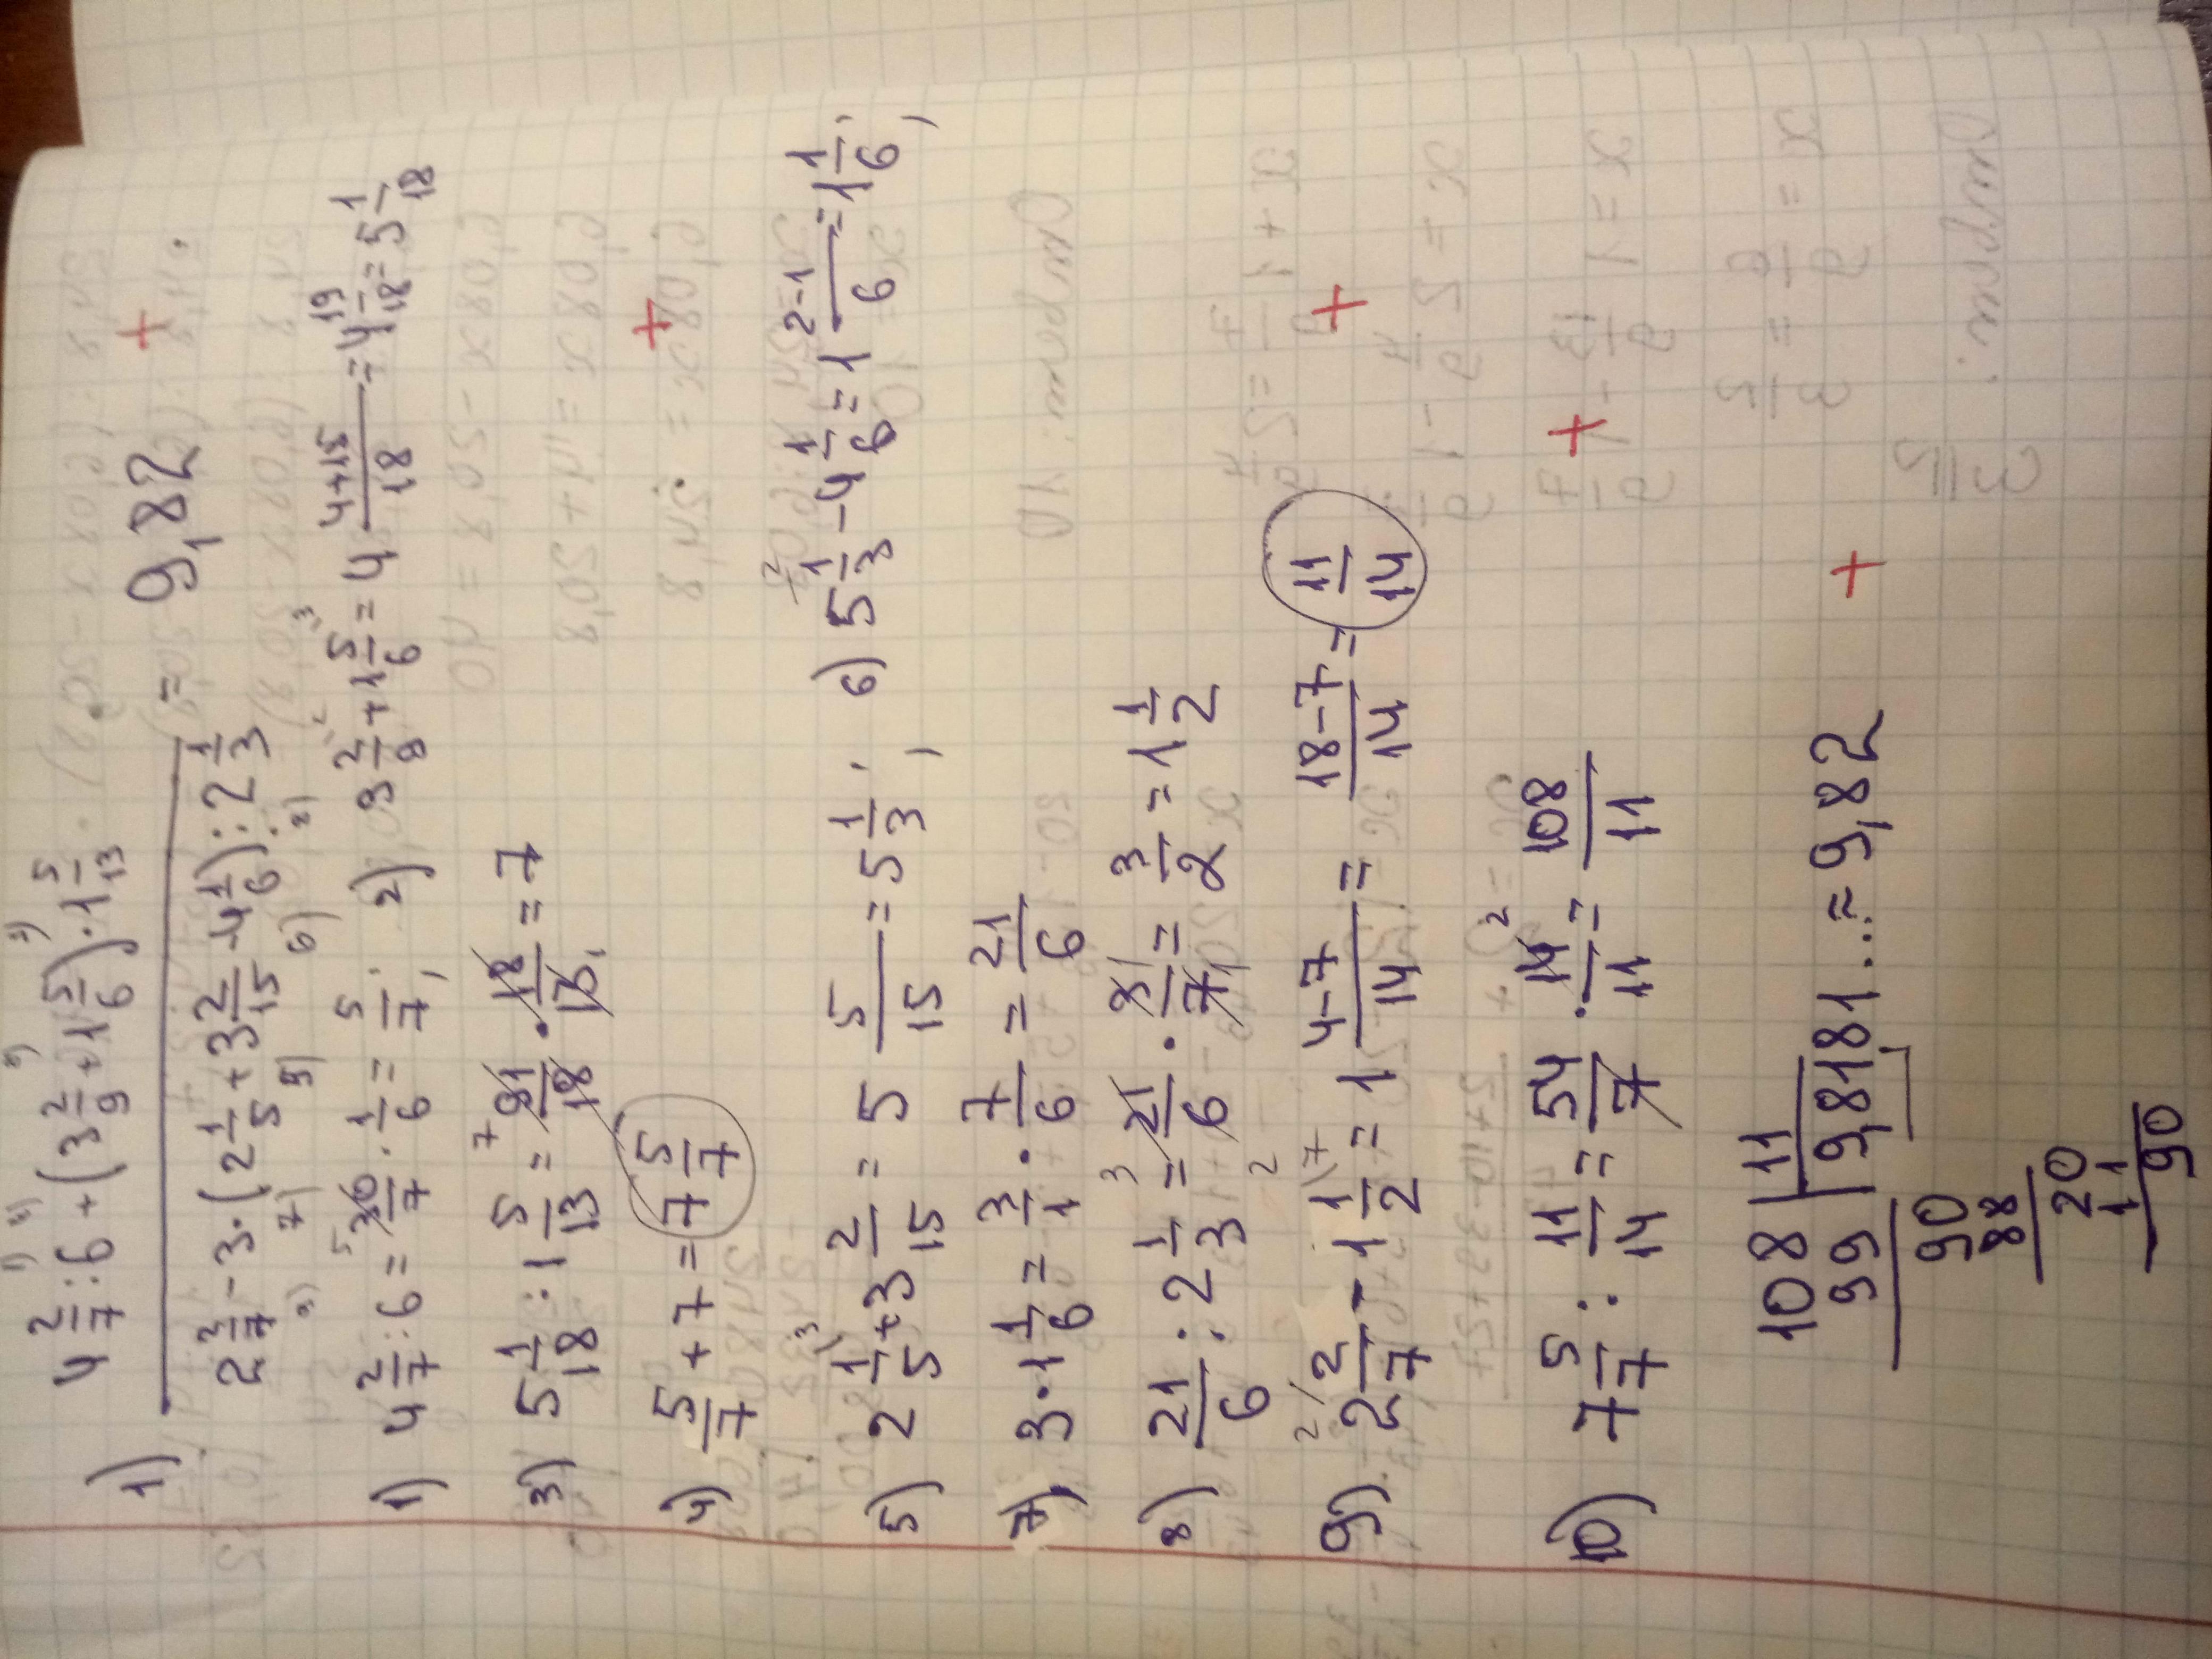 1) (4 2/7 : 6 + (3 2/9 + 1 5/6) · 1 5/13) / (2 2/7 - 3 · (2 1/5 + 3 2/15 - 4 1/6) : 2 1/3) = 9,82
1) 4 2/7 : 6 = 30/7 · 1/6 = 5/7; 2) 3 2/9 + 1 5/6 = 4 (4+15)/18 = 4 19/18 = 5 1/18
3) 5 1/18 : 1 5/13 = 91/18 · 18/13 = 7
4) 5/7 + 7 = 7 5/7
5) 2 1/5 + 3 2/15 = 5 5/15 = 5 1/3; 6) 5 1/3 - 4 1/6 = 1 (2-1)/6 = 1 1/6;
7) 3 · 1 1/6 = 3/1 · 7/6 = 21/6
8) 21/6 : 2 1/3 = 21/6 · 3/7 = 3/2 = 1 1/2
9) 2 2/7 - 1 1/2 = 1 (4-7)/14 = (18-7)/14 = 11/14
10) 7 5/7 : 11/14 = 54/7 · 14/11 = 108/11
108 | 11
99 | 9,8181... ≈ 9,82
90
88
20
11
90